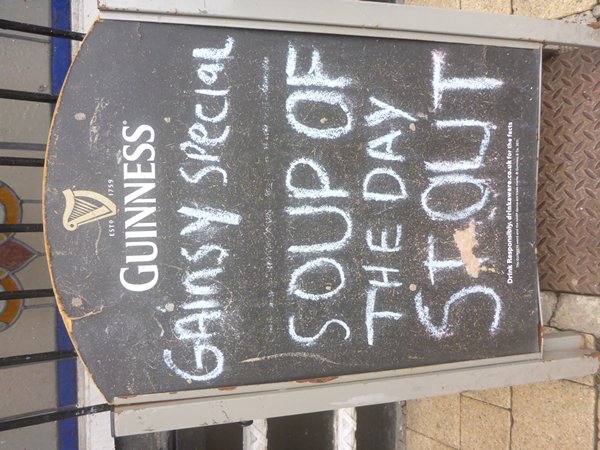 ESTD 1759
GUINNESS
GAINSY SPECIAL
SOUP OF
THE DAY
STOUT
Drink Responsibly. drinkaware.co.uk for the facts